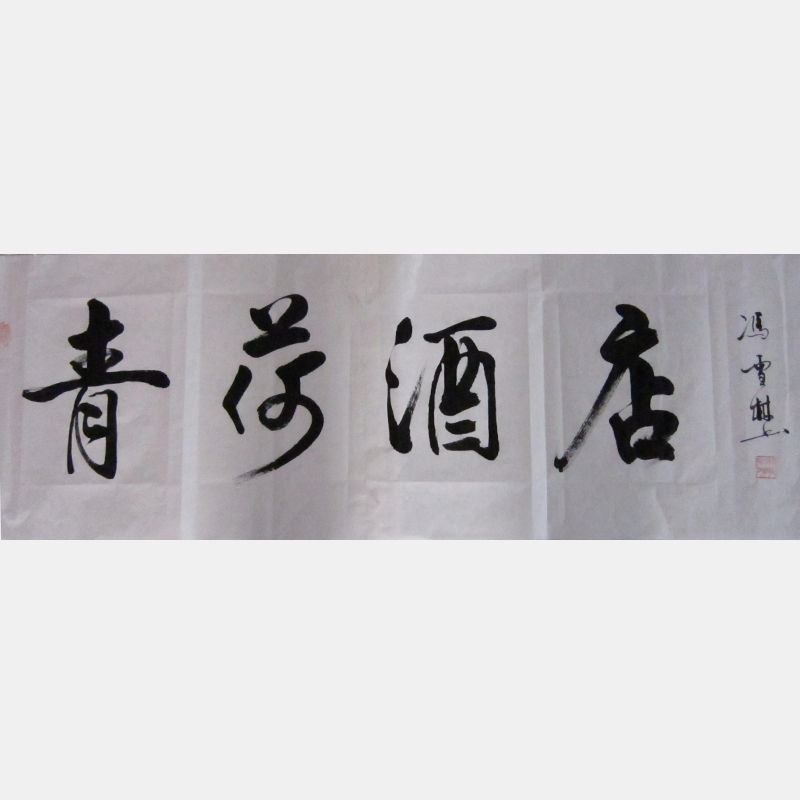 青荷酒店
冯雪林